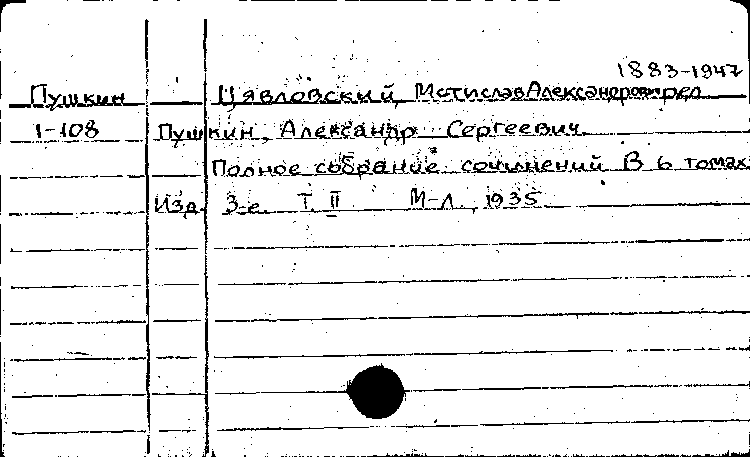 1883-1947
Пушкин Цявловский, Мстислав Александрович ред.
1-108 Пушкин, Александр Сергеевич.
Полное собрание сочинений В 6 томах
Изд. 3-е. Т. II М-Л., 1935